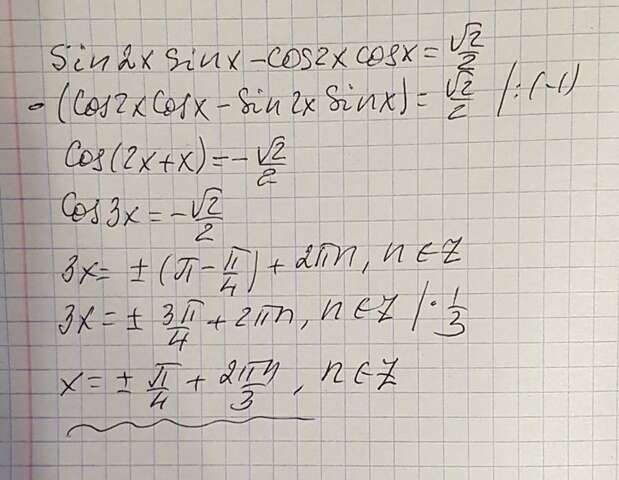 sin2x sinx - cos2x cosx = √2/2
-(cos2x cosx - sin2x sinx) = √2/2 /:(-1)
cos(2x+x) = -√2/2
cos3x = -√2/2
3x = ± (π - π/4) + 2πn, n ∈ Z
3x = ± 3π/4 + 2πn, n ∈ Z /· 1/3
x = ± π/4 + 2πn/3, n ∈ Z